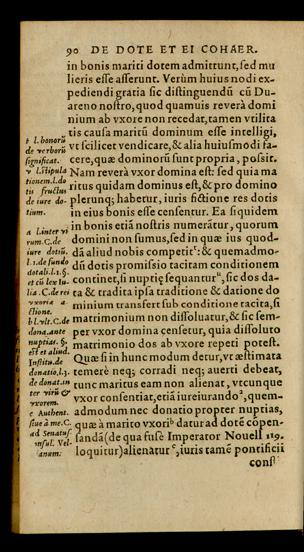 90 DE DOTE ET EI COHAER.
in bonis mariti dotem admittunt, sed mu
lieris esse asserunt. Verùm huius nodi ex-
pediendi gratia sic distinguendū cū Du-
areno nostro, quod quamuis reverà domi
nium ab vxore non recedat, tamen vtilita
tis causa maritū dominum esse intelligi,
vt scilicet vendicare, & alia huiusmodi fa-
cere, quæ dominorū sunt propria, possit.
Nam reverà vxor domina est: sed quia ma
ritus quidam dominus est, & pro domino
plerunq; habetur, iuris fictione res dotis
in eius bonis esse censentur. Ea siquidem
in bonis etiā nostris numerātur, quorum
domini non sumus, sed in quæ ius quod-
dā aliud nobis competit: & quemadmo-
dū dotis promissio tacitam conditionem
continet, si nuptię sequantur, sic dos da-
ta & tradita ipsa traditione & datione do
minium transfert sub conditione tacita, si
matrimonium non dissoluatur, & sic sem-
per vxor domina censetur, quia dissoluto
matrimonio dos ab vxore repeti potest.
Quæ si in hunc modum detur, vt æstimata
temerè neq; corradi neq; auerti debeat,
tunc maritus eam non alienat, vtcunque
vxor consentiat, etiā iureiurando, quem-
admodum nec donatio propter nuptias,
quæ à marito vxori datur ad dotē cōpen-
sandā (de qua fusè Imperator Nouell 119.
loquitur) alienatur, iuris tamē pontificii
cons
t l. bonorū
de verborū
significat.
v l. stipula
tionem. l. do
tis fructus
de iure do-
tium.
a l. inter vi
rum. C. de
iure dotiū.
l. 1. de fundo
dotali. l. 1. §.
et cū lex Iu-
lia. C. de rei
vxoria a
ctione.
b l. vlt. C. de
dona. ante
nuptias. §.
est et aliud.
Institu. de
donatio. l. 3.
de donat. in
ter virū &
vxorem.
c Authent.
siue à me. C.
ad Senatus
consul. Vel-
anum.